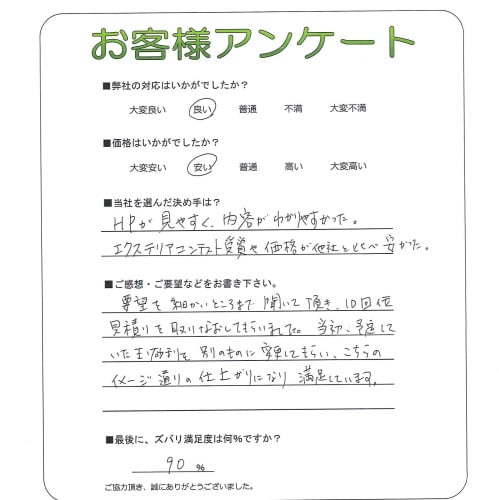 お客様アンケート
■弊社の対応はいかがでしたか？
大変良い 良い 普通 不満 大変不満
■価格はいかがでしたか？
大変安い 安い 普通 高い 大変高い
■当社を選んだ決め手は？
HPが見やすく、内容がわかりやすかった。
エクステリアコンテスト受賞や価格が他社と比べ安かった。
■ご感想・ご要望などをお書き下さい。
要望を細かいところまで聞いて頂き、10回位
見積りを取りなおしてもらいました。当初、予定して
いた 別のものに変更してもらい、こちらの
イメージ通りの仕上がりになり満足しています。
■最後に、ズバリ満足度は何%ですか？
90 %
ご協力頂き、誠にありがとうございました。